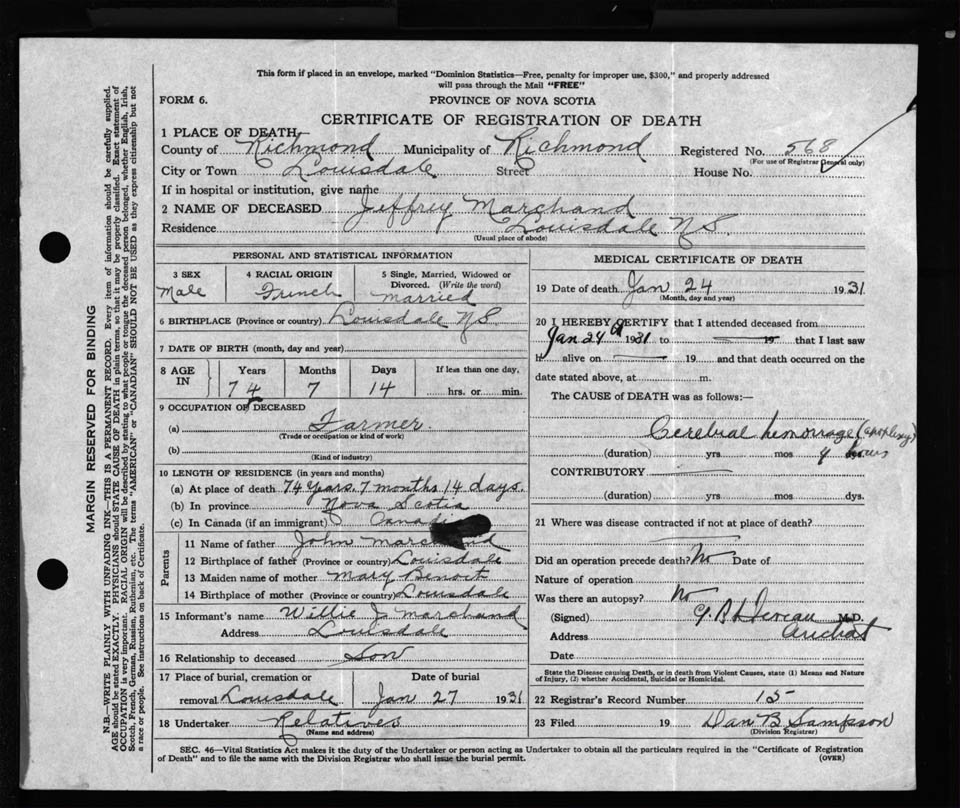 This form if placed in an envelope, marked "Dominion Statistics—Free, penalty for improper use, $300," and properly addressed
will pass through the Mail "FREE"
FORM 6.
PROVINCE OF NOVA SCOTIA
CERTIFICATE OF REGISTRATION OF DEATH
1 PLACE OF DEATH—
County of Richmond Municipality of Richmond Registered No. 568
(For use of Registrar General only)
City or Town Louisdale Street House No.
If in hospital or institution, give name
2 NAME OF DECEASED Jeffrey Marchand
Residence Louisdale N.S.
(Usual place of abode)
PERSONAL AND STATISTICAL INFORMATION
3 SEX 4 RACIAL ORIGIN 5 Single, Married, Widowed or
Divorced. (Write the word)
Male French married
6 BIRTHPLACE (Province or country) Louisdale N.S.
7 DATE OF BIRTH (month, day and year)
8 AGE IN Years Months Days If less than one day,
74 7 14 hrs. or min.
9 OCCUPATION OF DECEASED
(a) Farmer.
(Trade or occupation or kind of work)
(b)
(Kind of industry)
10 LENGTH OF RESIDENCE (in years and months)
(a) At place of death 74 years. 7 months 14 days.
(b) In province Nova Scotia
(c) In Canada (if an immigrant)
Parents
11 Name of father John
12 Birthplace of father (Province or country) Louisdale
13 Maiden name of mother Mary Benoit
14 Birthplace of mother (Province or country) Louisdale
15 Informant's name Willie J Marchand
Address Louisdale
16 Relationship to deceased Son
17 Place of burial, cremation or removal Louisdale Date of burial Jan 27 1931
18 Undertaker Relatives
(Name and address)
MEDICAL CERTIFICATE OF DEATH
19 Date of death Jan 24 1931
(Month, day and year)
20 I HEREBY CERTIFY that I attended deceased from
Jan 24 1931 to 19 that I last saw
H alive on 19 and that death occurred on the
date stated above, at m.
The CAUSE of DEATH was as follows:—
Cerebral hemorrage (apoplexy)
(duration) yrs. mos. hours
CONTRIBUTORY
(duration) yrs. mos. dys.
21 Where was disease contracted if not at place of death?
Did an operation precede death? No Date of
Nature of operation
Was there an autopsy? No
(Signed) M.D.
Address Arichat
Date
State the Disease causing Death, or in death from Violent Causes, state (1) Means and Nature
of Injury, (2) whether Accidental, Suicidal or Homicidal.
22 Registrar's Record Number 15
23 Filed 19 Dan B Sampson
(Division Registrar)
SEC. 46—Vital Statistics Act makes it the duty of the Undertaker or person acting as Undertaker to obtain all the particulars required in the "Certificate of Registration
of Death" and to file the same with the Division Registrar who shall issue the burial permit.
(OVER)
MARGIN RESERVED FOR BINDING
N.B.—WRITE PLAINLY WITH UNFADING INK—THIS IS A PERMANENT RECORD. Every item of information should be carefully supplied.
AGE should be stated EXACTLY. PHYSICIANS should STATE CAUSE OF DEATH in plain terms, so that it may be properly classified. Exact statement of
OCCUPATION is very important. RACIAL ORIGIN will be described by stating to what people or tongue the deceased person belonged, whether English, Irish,
Scotch, French, German, Russian, Ruthenian, etc. The terms "AMERICAN" or "CANADIAN" SHOULD NOT BE USED as they express citizenship but not
a race or people. See instructions on back of Certificate.